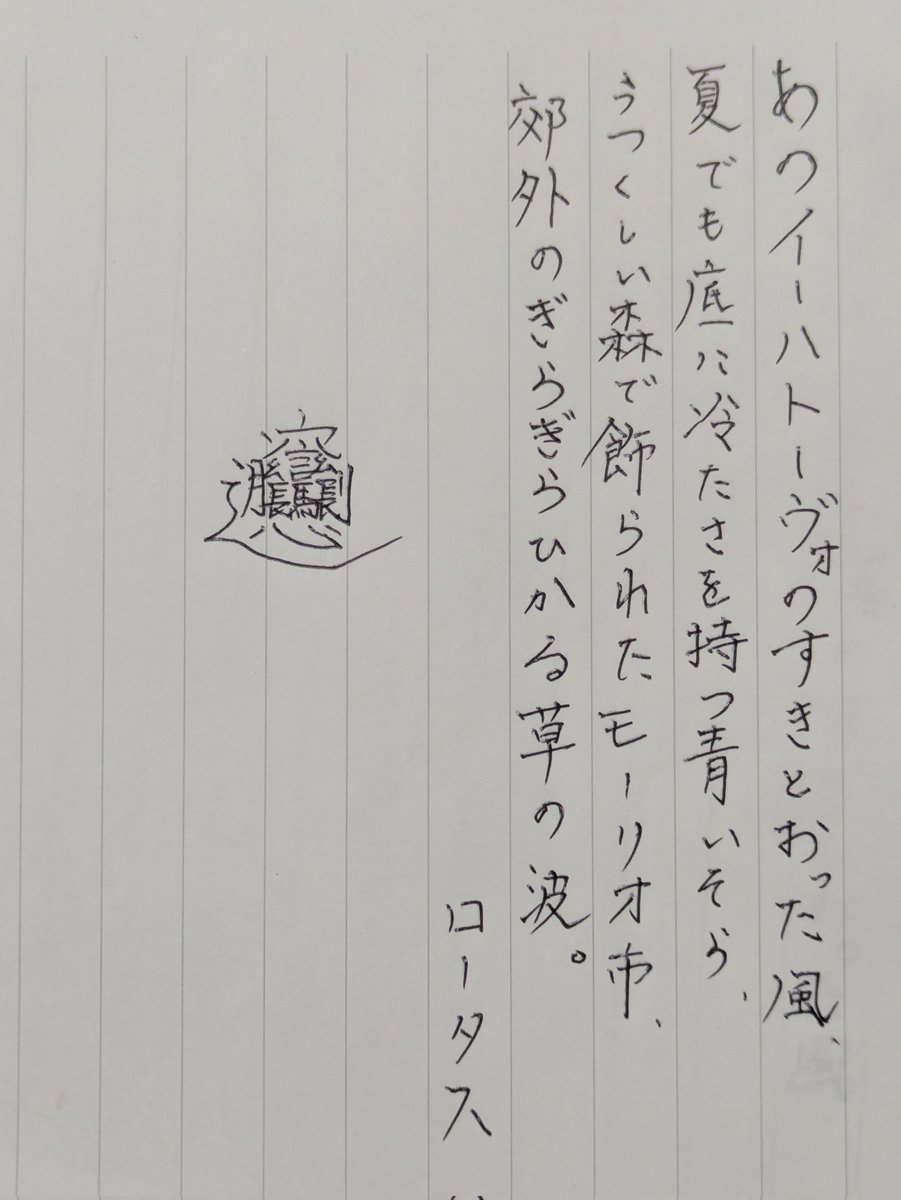 あのイーハトーヴォのすきとおった風、
夏でも底に冷たさを持つ青いそら、
うつくしい森で飾られたモーリオ市、
郊外のぎらぎらひかる草の波。
ロータス
𰻞